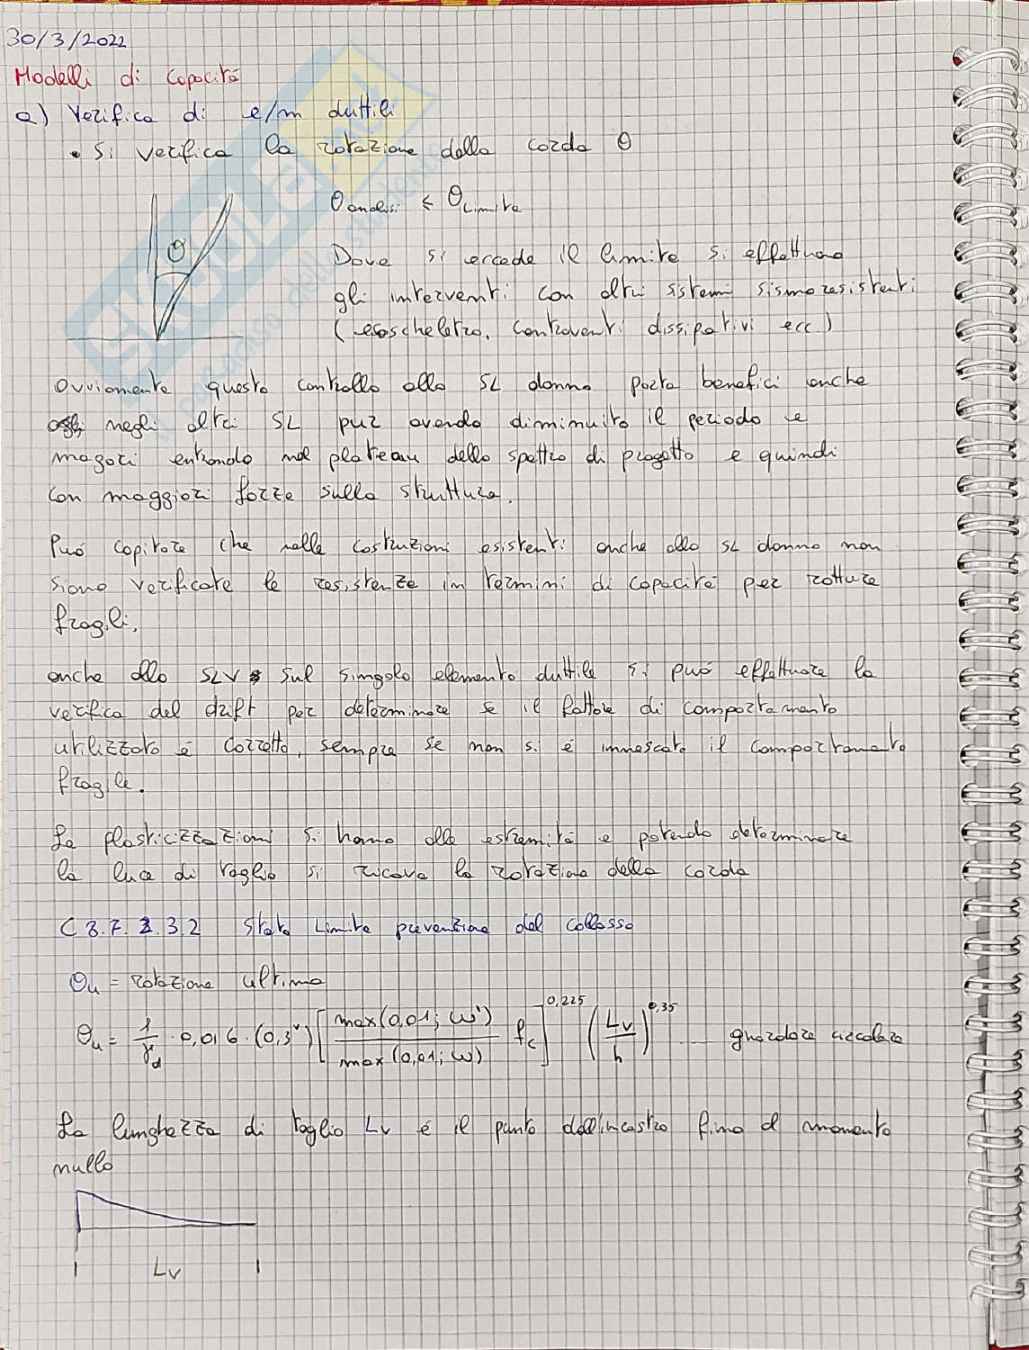 30/3/2022
Modelli di capacità
a) Verifica di e/m duttili
• Si verifica la rotazione della corda θ
θ
θanalisi ≤ θLimite
Dove si eccede il limite si effettuano
gli interventi con altri sistemi sismoresistenti
(esoscheletro, controventi dissipativi ecc.)
Ovviamente questo controllo allo SL danno porta benefici anche
negli altri SL pur avendo diminuito il periodo e
magari entrando nel plateau dello spettro di progetto e quindi
con maggiori forze sulla struttura.
Può capitare che nelle costruzioni esistenti anche allo SL danno non
siano verificate le resistenze in termini di capacità per rotture
fragili.
anche allo SLV sul singolo elemento duttile si può effettuare la
verifica del drift per determinare se il fattore di comportamento
utilizzato è corretto, sempre se non si è innescato il comportamento
fragile.
Le plasticizzazioni si hanno alle estremità e potendo determinare
la luce di taglio si ricava la rotazione della corda
C 8.7.2.3.2 Stato Limite prevenzione del collasso
θu = rotazione ultima
θu = 1/γd · 0,016 · (0,3^ν) [max(0,01; ω')/max(0,01; ω) fc]^0,225 (Lv/h)^0,35 ... guardare circolare
La lunghezza di taglio Lv è il punto dell'incastro fino al momento
nullo
Lv